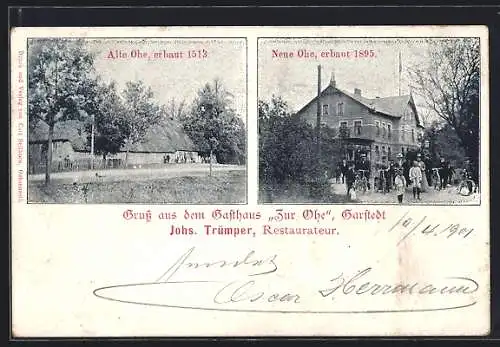 Alte Ohe, erbaut 1513
Neue Ohe, erbaut 1895.
Gruß aus dem Gasthaus „Zur Ohe", Garstedt
Johs. Trümper, Restaurateur.
10/4. 1901
sendet
Oscar Herrmann
Druck und Verlag von